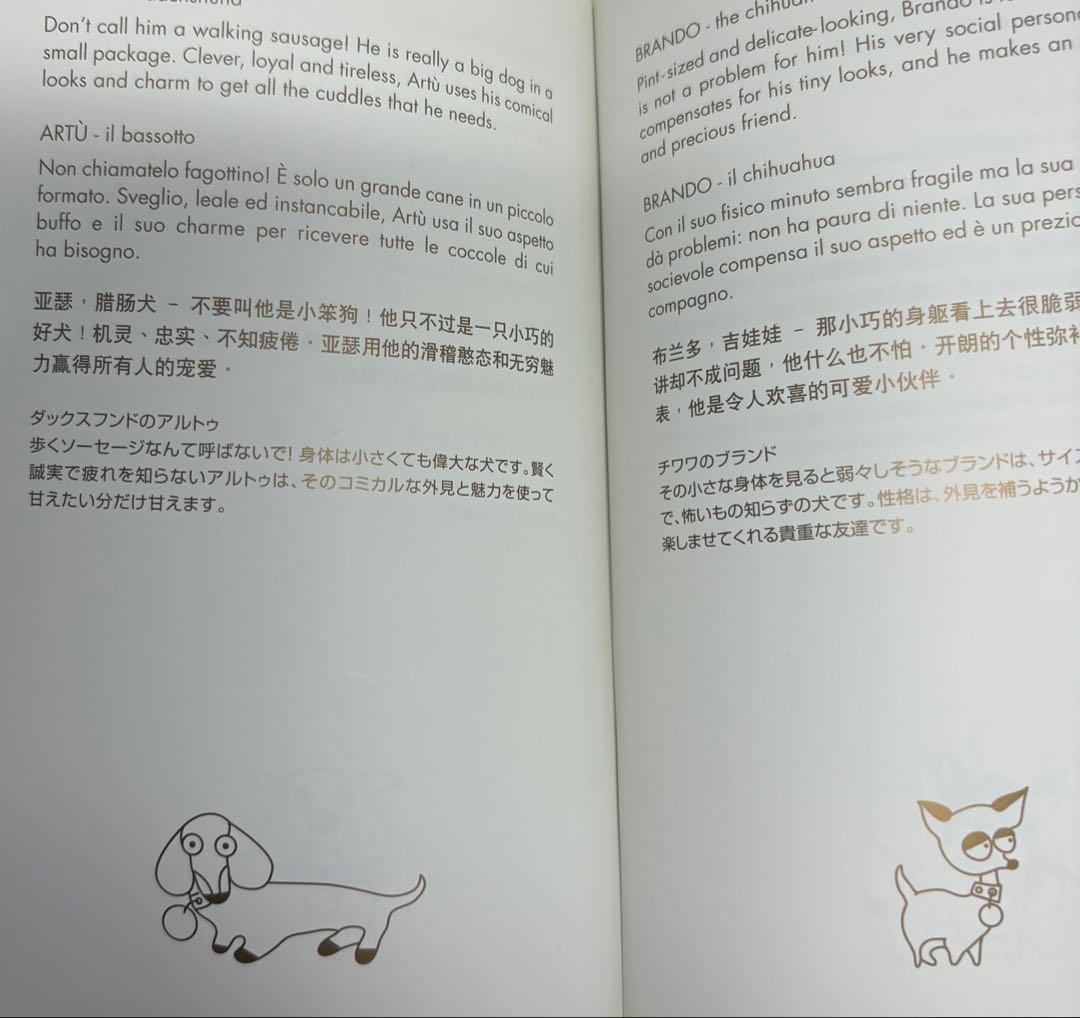 Don't call him a walking sausage! He is really a big dog in a
small package. Clever, loyal and tireless, Artù uses his comical
looks and charm to get all the cuddles that he needs.
ARTÙ - il bassotto
Non chiamatelo fagottino! È solo un grande cane in un piccolo
formato. Sveglio, leale ed instancabile, Artù usa il suo aspetto
buffo e il suo charme per ricevere tutte le coccole di cui
ha bisogno.
亚瑟，腊肠犬 – 不要叫他是小笨狗！他只不过是一只小巧的
好犬！机灵、忠实、不知疲倦。亚瑟用他的滑稽憨态和无穷魅
力赢得所有人的宠爱。
ダックスフンドのアルトゥ
歩くソーセージなんて呼ばないで！身体は小さくても偉大な犬です。賢く
誠実で疲れを知らないアルトゥは、そのコミカルな外見と魅力を使って
甘えたい分だけ甘えます。
BRANDO - the chihuahua
Pint-sized and delicate-looking, Brando is
is not a problem for him! His very social
compensates for his tiny looks, and he makes an
and precious friend.
BRANDO - il chihuahua
Con il suo fisico minuto sembra fragile ma la sua
dà problemi: non ha paura di niente. La sua
socievole compensa il suo aspetto ed è un
compagno.
布兰多，吉娃娃 – 那小巧的身躯看上去很脆弱
讲却不成问题，他什么也不怕。开朗的个性弥补
表，他是令人欢喜的可爱小伙伴。
チワワのブランド
その小さな身体を見ると弱々しそうなブランドは、サイズ
で、怖いもの知らずの犬です。性格は、外見を補うようか
楽しませてくれる貴重な友達です。